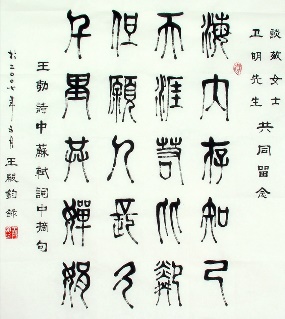 女士
卫明先生 共同留念
海内存知己
天涯若比鄰
但願人長久
千里共嬋娟
王勃詩中蘇軾詞中摘句
於二00七年 月王殿鈞錄